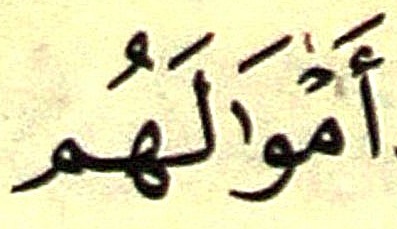 أَمْوَالَهُم